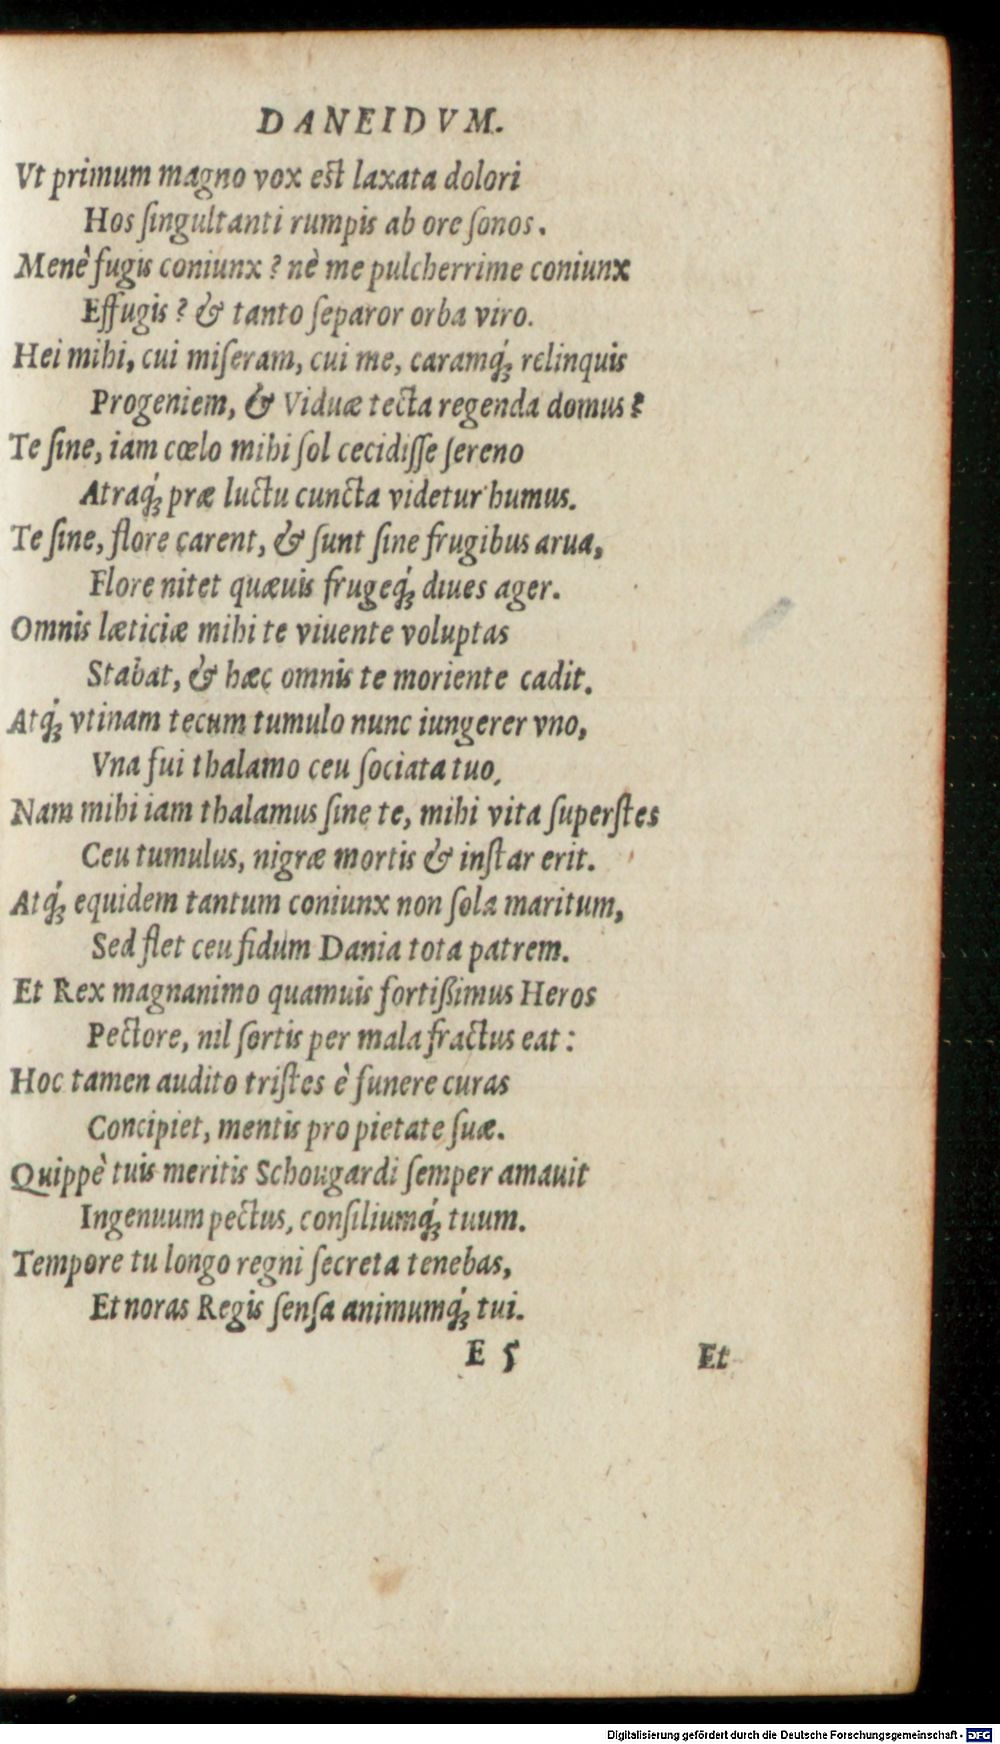 DANEIDVM.
Vt primum magno vox est laxata dolori
Hos ſingultanti rumpis ab ore ſonos.
Menè fugis coniunx? nè me pulcherrime coniunx
Effugis? & tanto ſeparor orba viro.
Hei mihi, cui miſeram, cui me, caramq́; relinquis
Progeniem, & Viduæ tecta regenda domus?
Te ſine, iam cœlo mihi ſol cecidiſſe ſereno
Atraq́; præ luctu cuncta videtur humus.
Te ſine, flore carent, & ſunt ſine frugibus arua,
Flore nitet quæuis frugeq́; diues ager.
Omnis læticiæ mihi te viuente voluptas
Stabat, & hæc omnis te moriente cadit.
Atq́; vtinam tecum tumulo nunc iungerer vno,
Vna fui thalamo ceu ſociata tuo,
Nam mihi iam thalamus ſine te, mihi vita ſuperſtes
Ceu tumulus, nigræ mortis & inſtar erit.
Atq́; equidem tantum coniunx non ſola maritum,
Sed flet ceu fidum Dania tota patrem.
Et Rex magnanimo quamuis fortißimus Heros
Pectore, nil ſortis per mala fractus eat:
Hoc tamen audito triſtes è funere curas
Concipiet, mentis pro pietate ſuæ.
Quippè tuis meritis Schougardi ſemper amauit
Ingenuum pectus, conſiliumq́; tuum.
Tempore tu longo regni ſecreta tenebas,
Et noras Regis ſenſa animumq́; tui.
E 5 Et
Digitalisierung gefördert durch die Deutsche Forschungsgemeinschaft - DFG